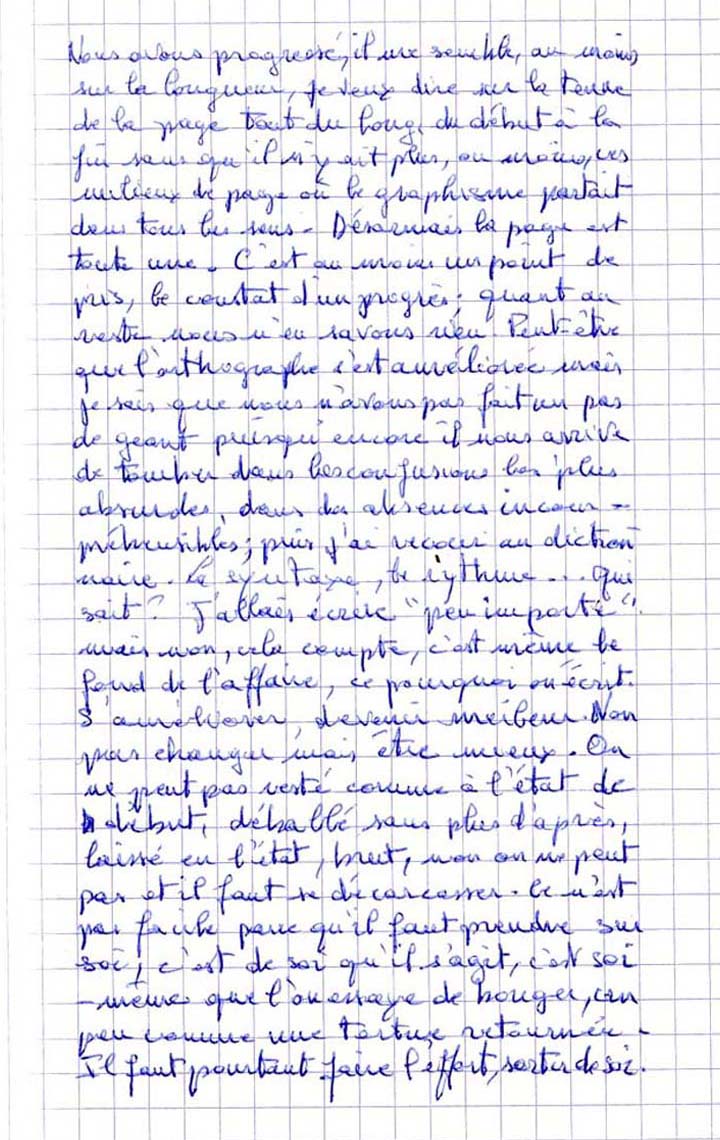 Nous avons progressé, il me semble, au moins
sur la longueur, je veux dire sur la tenue
de la page tout du long, du début à la
fin sans qu'il n'y ait plus, au moins, ces
milieux de page où le graphisme partait
dans tous les sens - Désormais la page est
toute une. C'est au moins un point de
pris, le constat d'un progrès ; quant au
reste nous n'en savons rien. Peut-être
que l'orthographe s'est améliorée mais
je sais que nous n'avons pas fait un pas
de géant puisqu'encore il nous arrive
de tomber dans les confusions les plus
absurdes, dans des absences incom-
préhensibles ; puis j'ai recours au diction
naire. La syntaxe, le rythme... Qui
sait ? J'allais écrire "peu importe".
mais non, cela compte, c'est même le
fond de l'affaire, ce pourquoi on écrit.
S'améliorer, devenir meilleur. Non
pas changer mais être mieux. On
ne peut pas resté comme à l'état de
début, déballé sans plus d'après,
laissé en l'état, brut, non on ne peut
pas et il faut se décarcasser. Ce n'est
pas facile parce qu'il faut prendre sur
soi, c'est de soi qu'il s'agit, c'est soi
-même que l'on essaye de bouger, un
peu comme une tortue retournée -
Il faut pourtant faire l'effort, sortir de soi.